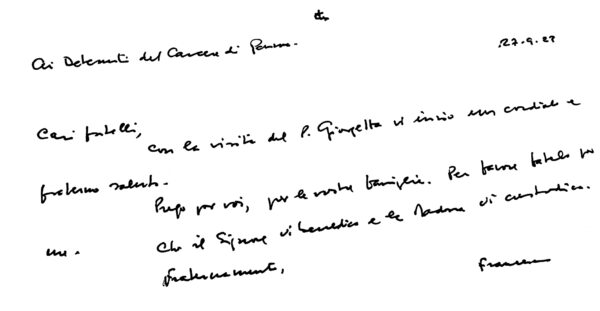 Ai Detenuti del Carcere di
27.9.22
Cari fratelli,
con la visita del P. Giorgetta vi invio un cordiale e
fraterno saluto.
Prego per voi, per le vostre famiglie. Per favore fatelo per
me.
Che il Signore vi benedica e la Madonna vi custodisca.
Fraternamente,
Francesco